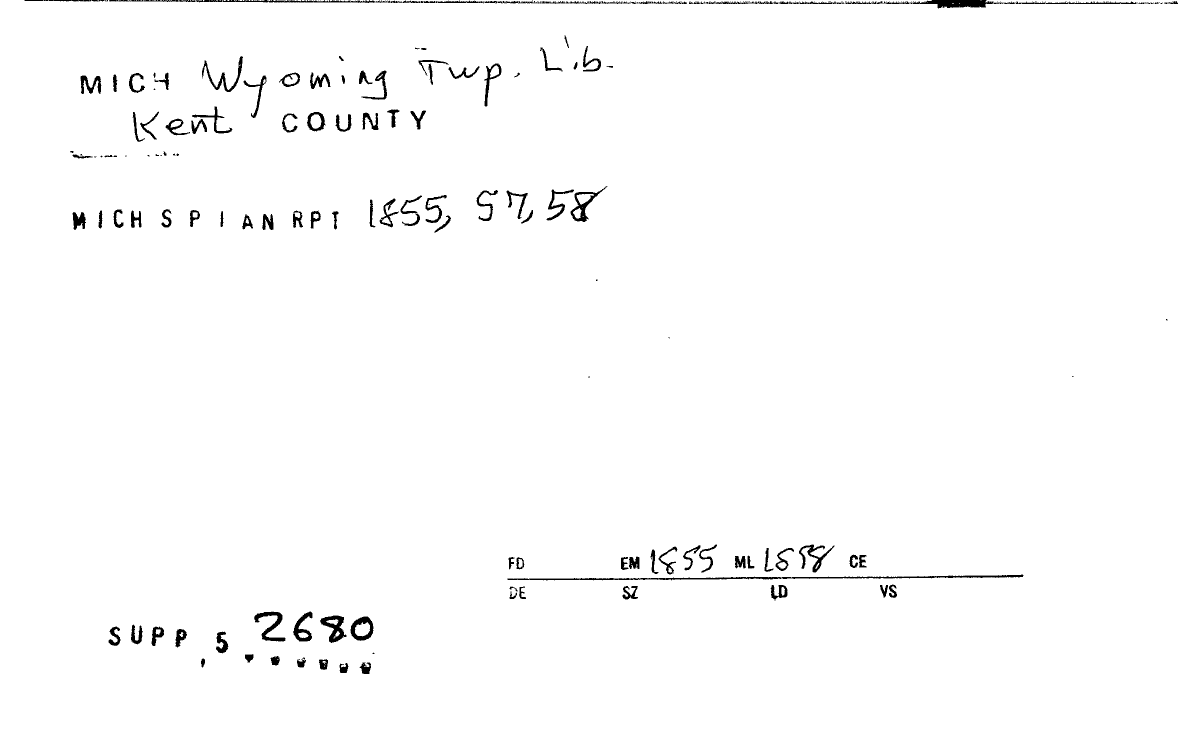 MICH Wyoming Twp. Lib.
Kent COUNTY
MICH S P I AN RPT 1855, 57, 58
FD EM 1855 ML 1858 CE
DE SZ LD VS
SUPP, 5 2680